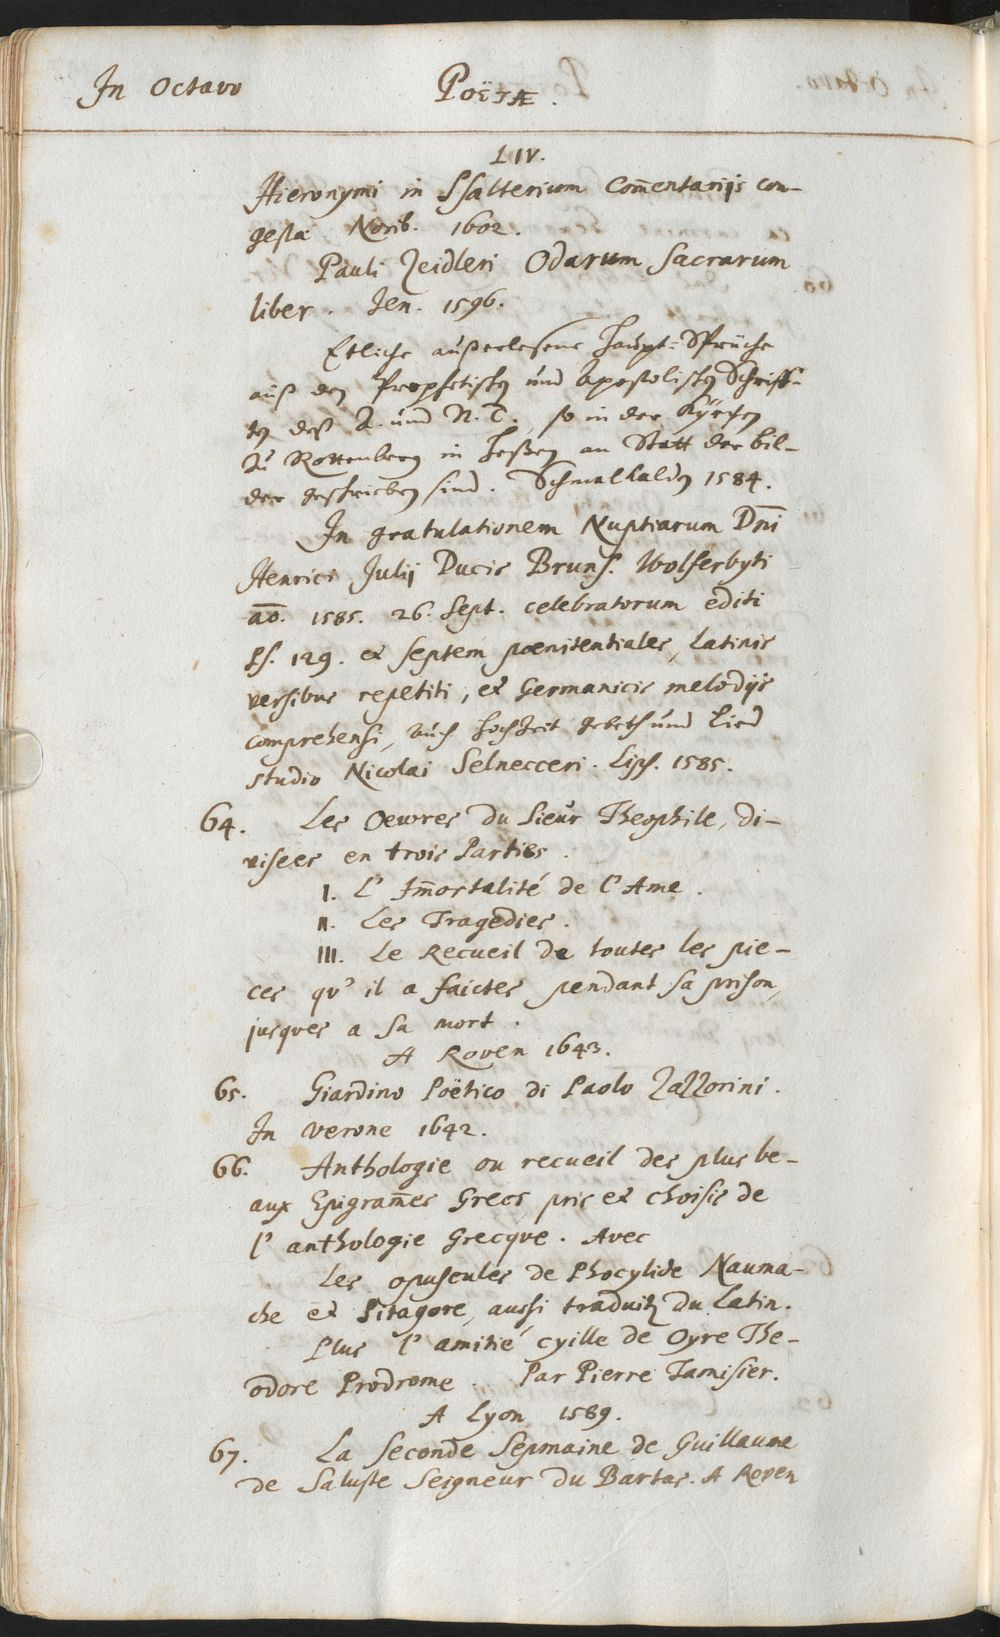 In Octavo
POËTÆ.
LIV.
Hieronymi in Psalterium Com̄entarijs con-
gesta Norib. 1602.
Pauli Zeidleri Odarum sacrarum
liber. Jen. 1596.
Etliche außerlesene Haupt-Sprüche
auß den Prophetischen und Apostolischen Schriff-
ten deß A. und N. T., so in der Kyrchen
zu Rottenberg in Heßen an Statt der bil-
der geschrieben sind. Schmalkalden 1584.
In gratulationem Nuptiarum Dn̄i
Henrici Julij Ducis Bruns. Wolferbyti
ao. 1585. 26. Sept. celebratorum editi
Ps. 129. et septem pœnitentiales, Latinis
versibus repetiti, et Germanicis melodijs
comprehensi, auch hochzeit gebeth und Lied
studio Nicolai Selnecceri. Lips. 1585.
64. Les Oeuvres du Sieur Theophile, di-
visees en trois Parties.
I. L' Im̄ortalité de l' Ame.
II. Les Tragedies.
III. Le Recueil de toutes les pie-
ces qu' il a faictes pendant sa prison,
jusques a sa mort.
A Roven 1643.
65. Giardino Poëtico di Paolo Zazzorini.
In Verone 1642.
66. Anthologie ou recueil des plus be-
aux Epigram̄es Grecs pris et choisis de
l' anthologie Grecque. Avec
Les opuscules de Phocylide Nauma-
che et Pitagore, aussi traduitz du Latin.
Plus l' amitié cyille de Oyre The-
odore Prodrome. Par Pierre Tamisier.
A Lyon 1589.
67. La Seconde Sepmaine de Guillaume
de Saluste Seigneur du Bartas. A Roven